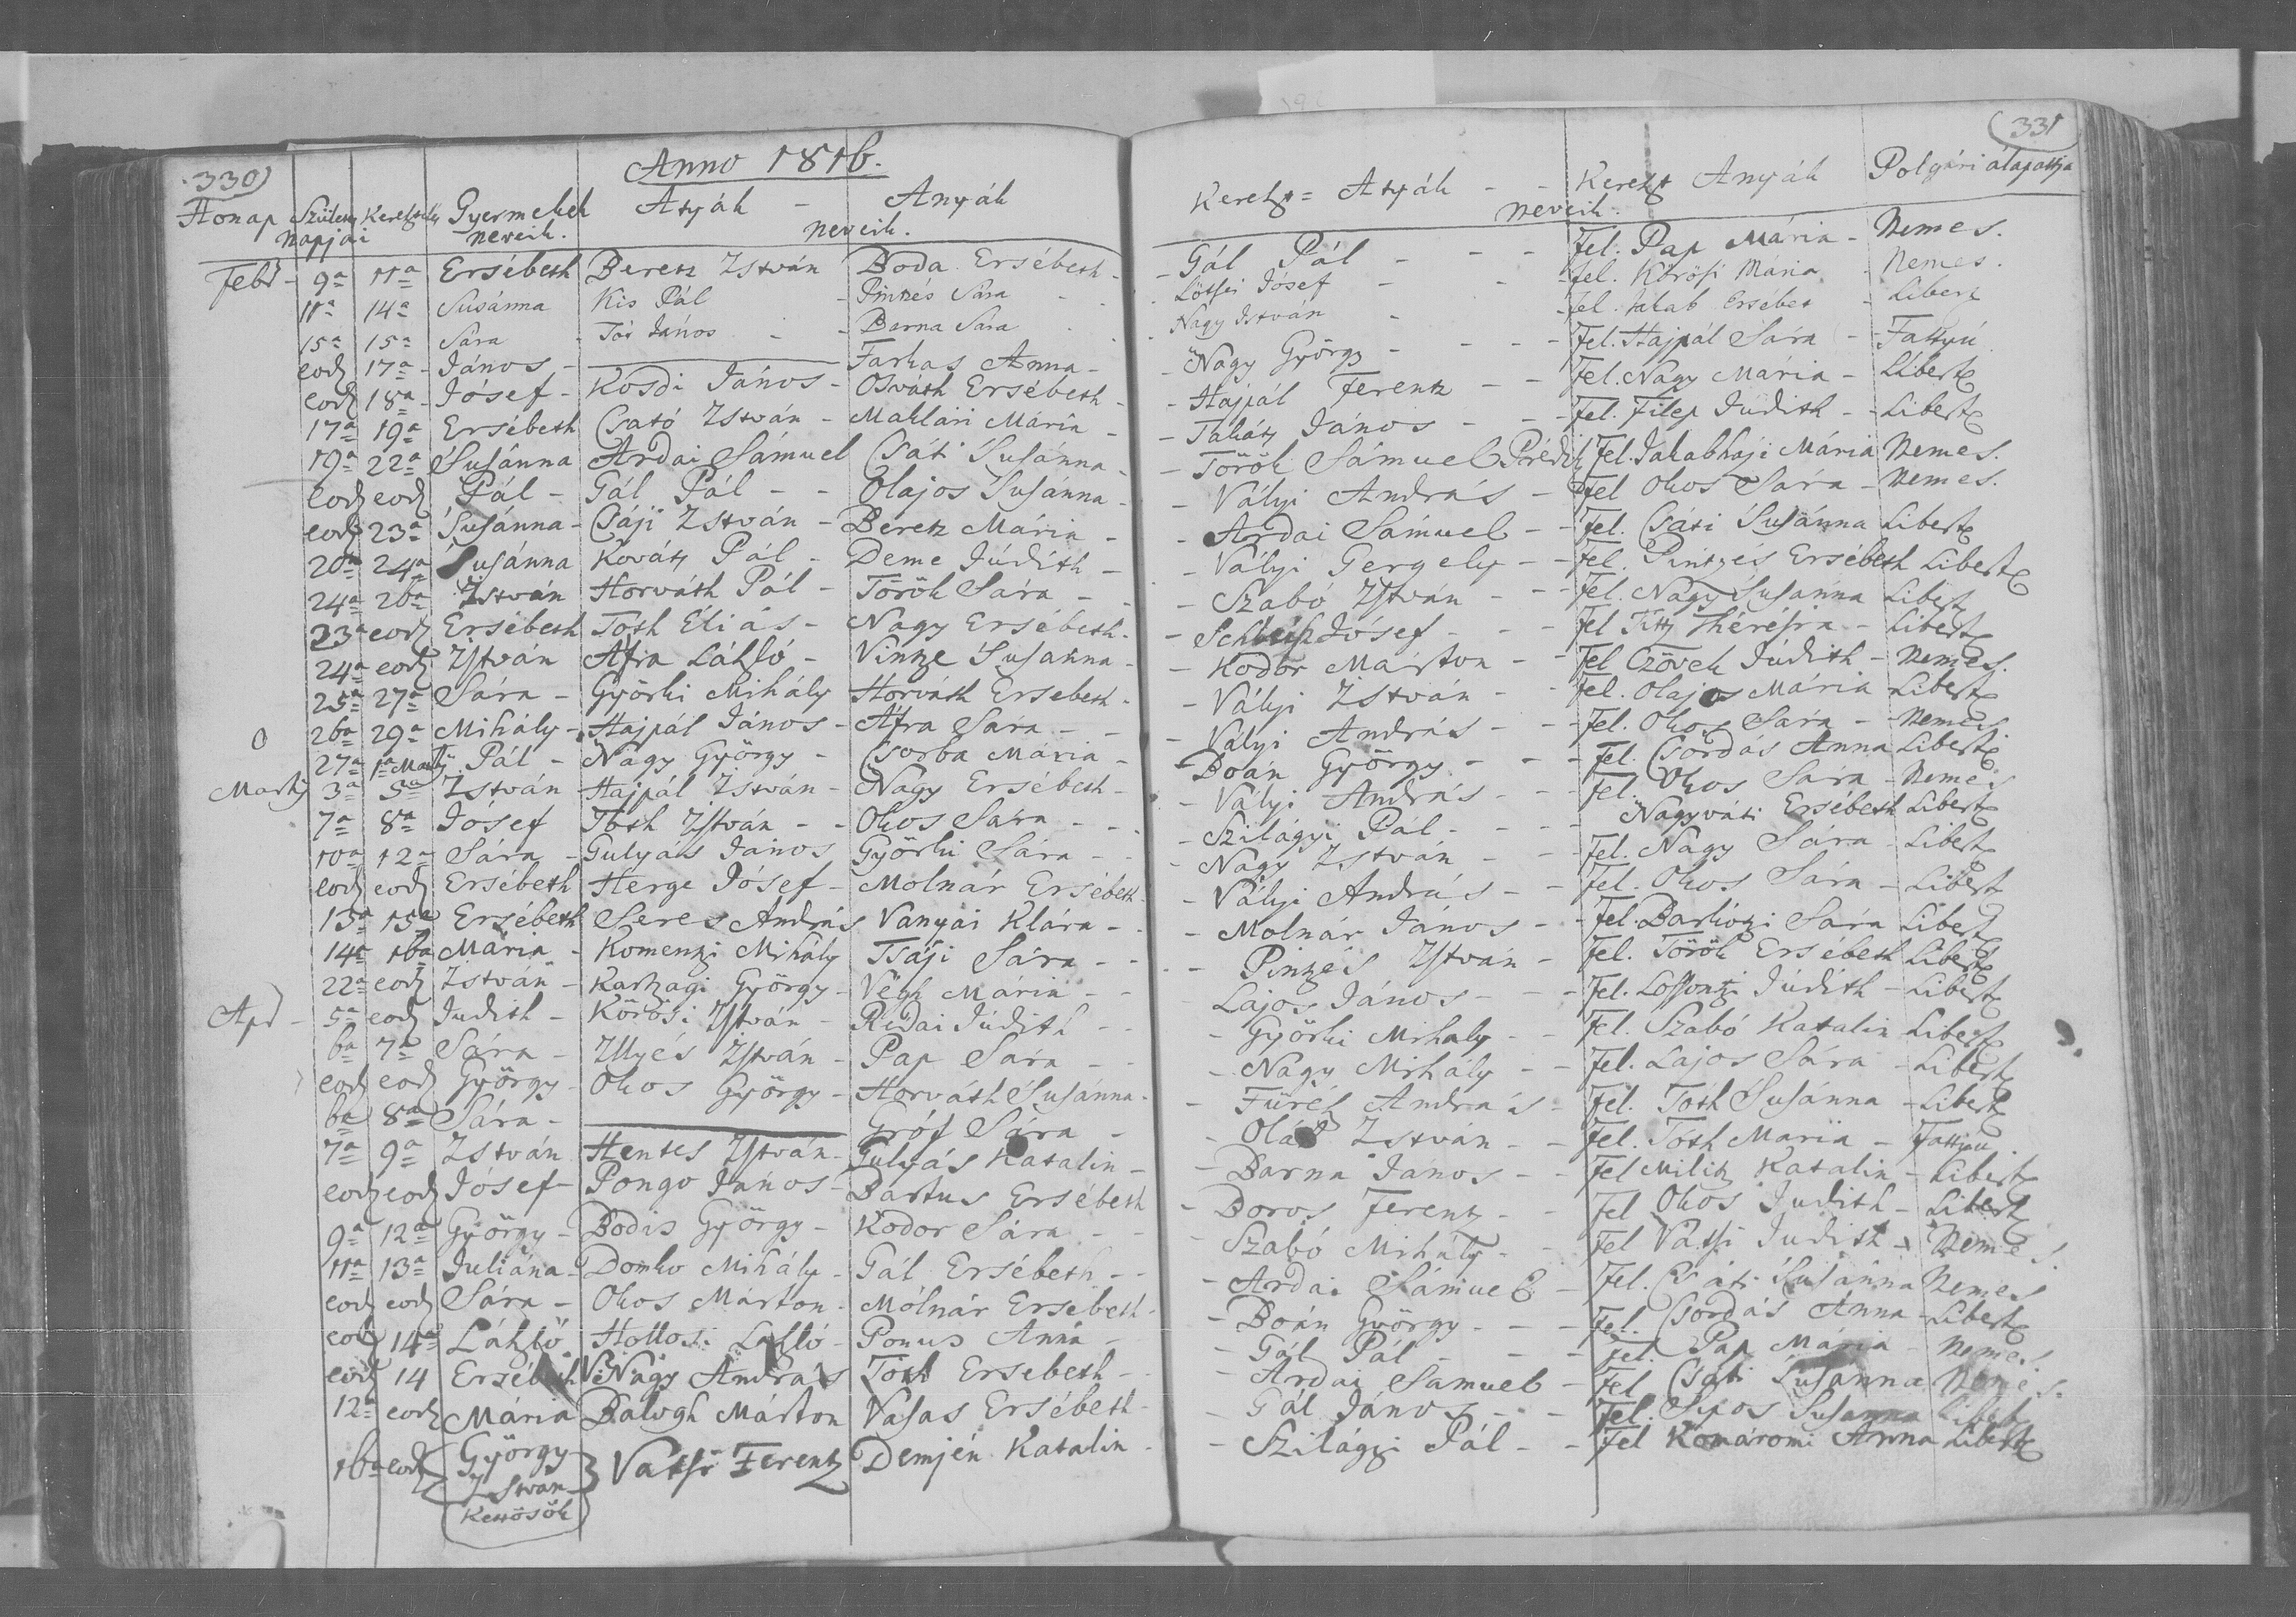 330
Anno 1816.
Honap Születés Kereszts. Gyermekek Atyák - Anyák
Napjai neveik. neveik.
Febr - 9a 11a Ersébeth Beretz István Boda Ersébeth -
11a 14a Susánna Kis Pál - Pintzés Sára
15a 15a Sára - Tár János - Barna Sára
eod 17a - János - Farkas Anna -
eod 18a - Jósef - Kosdi János - Osváth Ersébeth -
17a 19a Ersébeth Csató István - Maklári Mária -
19a 22a Susánna Ardai Sámuel Csáti Susánna -
eod eod Pál - Gál Pál - - Olajos Susánna -
eod 23a Susánna - Csáji István - Beretz Mária -
20a 24a Susánna Kováts Pál - Deme Júdith -
24a 26a István Horváth Pál - Török Sára - -
23a eod Ersébeth Toth Éliás - Nagy Ersébeth -
24a eod István Afra László - Vintze Susánna -
25a 27a Sára - Györki Mihály Horváth Ersebeth -
26a 29a Mihály - Hajpál János - Afra Sára - -
27a 1a Martij Pál - Nagy György - Csorba Mária -
Martij 3a 5a István Hajpál István - Nagy Ersébeth -
7a 8a Jósef Tóth István - - Okos Sára - - -
10a 12a Sára - Gulyás János Györki Sára - -
eod eod Ersébeth Herge Jósef - Molnár Ersébeth -
13a 15a Ersébeth Seres András Vanyai Klára - -
14a 16a Mária - Komentzi Mihály Tsáji Sára - -
22a eod István - Kartzagi György - Végh Mária - -
Apr - 5a eod Judith - Körösi István - Rédai Júdith - -
6a 7a Sára - Illyés István - Pap Sára - -
eod eod György - Okos György - Horváth Susánna -
6a 8a Sára - Gróf Sára -
7a 9a István Hentes István - Gulyás Katalin -
eod eod Jósef - Pongo János - Bartus Ersébeth
9a 12a György - Bodis György - Kodor Sára - -
11a 13a Juliána - Domko Mihály - Gál Ersébeth - -
eod eod Sára - Okos Márton - Mólnár Ersebeth -
eod 14a László Hollosi László - Ponus Anna -
eod 14 Ersébeth Nagy András Tóth Ersebeth - -
12a eod Mária Balogh Márton Vasas Ersébeth -
16a eod György Vatsi Ferentz Demjén Katalin -
István
Kettösök
331
Kereszt= Atyák - - Kereszt Anyák Polgári álapattja
neveik.
- Gál Pál - - - Fel. Pap Mária - Nemes.
- Lötsei Jósef - - - Fel. Körösi Mária - Nemes.
- Nagy István - - Fel. Jakab Ersébet - Libert
- Nagy György - - - - Fel. Hajpál Sára - Fattyú
- Hajpál Ferentz - - Fel. Nagy Mária - Libert
- Takáts János - - - Fel. Filep Júdith - - Libert
- Török Sámuel Prédik Fel. Jakabhaji Mária Nemes.
- Vályi András - Fel Okos Sára - Nemes.
- Ardai Sámuel - - Fel. Csáti Susánna Libert
- Vályi Gergely - - Fel. Pintzés Ersébeth Libert
- Szabó István - - - Fel. Nagy Susánna Libert
- Jósef - - - Fel Thérésia - Libert
- Kodor Márton - - Fel Czövek Júdith - Nemes.
- Vályi István - - Fel. Olajos Mária Libert
- Vályi András - - - Fel. Okos Sára - - Nemes
- Boán György - - - Fel. Csordás Anna Libert
- Vályi András - - Fel. Okos Sára - Nemes
- Szilágyi Pál - - - - Nagyváti Ersébeth Libert
- Nagy István - - - Fel. Nagy Sára - Libert
- Vályi András - - Fel. Okos Sára - Libert
- Molnár János - - - Fel. Barkótzi Sára Libert
- Pintzés István - Fel. Török Ersébeth Libert
- Lajos János - - - Fel. Lossontzi Júdith - Libert
- Györki Mihaly - - Fel. Szabó Katalin Libert
- Nagy Mihály - - Fel. Lajos Sára - Libert
- Fürész András - Fel. Tóth Susánna - Libert
- Oláh István - - Fel. Tóth Maria - Fattyu
- Barna János - - Fel Militz Katalin - Libert
- Boros Ferentz - - Fel Okos Judith - Libert
- Szabó Mihály - - Fel Vatsi Judith - Nemes
- Ardai Sámuel - Fel. Csáti Susánna Nemes
- Boán György - - - Fel. Csordás Anna - Libert
- Gál Pál - - - Fel. Pap Mária - Nemes.
- Ardai Samuel - Fel Csáti Susanna Nemes.
- Gál János - - - Fel. Sipos Susanna Libert
- Szilágyi Pál - - Fel Komáromi Anna Libert